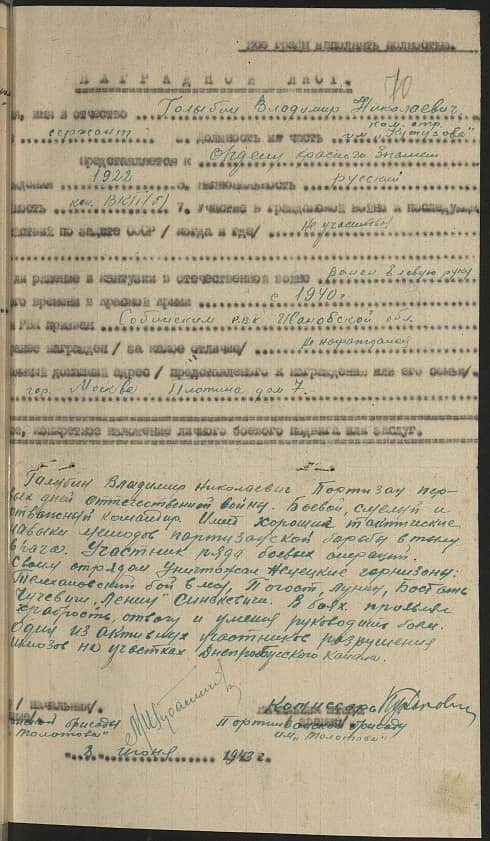 НАГРАДНОЙ ЛИСТ.
70
я, имя и отчество Голыбин Владимир Николаевич
сержант 2. Должность и часть ком. отр.
им "Кутузова"
представляется к Ордену Красного Знамени
1922 5. национальность русский
ность кан. ВКП/б/ 7. Участие в гражданской войне и последующ
йствий по защите СССР / когда и где/ Не участвовал
ли ранение и контузии в отечественной войне Ранен в левую руку
го времени в Красной Армии с 1940 г.
РВК призван Собинским рвк Ивановской обл.
ранее награжден / за какое отличие/ Не награждался
домашний адрес / представленного к награждению или его семьи/
гор. Москва Плотина дом 7.
ое, конкретное изложение личного боевого подвига или заслуг.
Голубин Владимир Николаевич Портизан пер-
вых дней оттечественной войны. Боевой, смелый и
командир. Имет хорошие тактические
навыки методов партизанской борьбы в тылу
врага. Участник ряда боевых операций.
Своим отрядом уничтожал немецкие гарнизоны:
Телехановский бой в мае, Погост, Лунин,
"Ленин" Синкевичи. В боях проявил
храбрость, отвагу и умения руководит боем.
Один из активных участников разрушения
шлюзов на участках Днепробугского канала.
/ начальник/.
Комиссар
бригады
Портизанской бригады
"Молотова"
им. "Молотова"
"2" июня 1943 г.